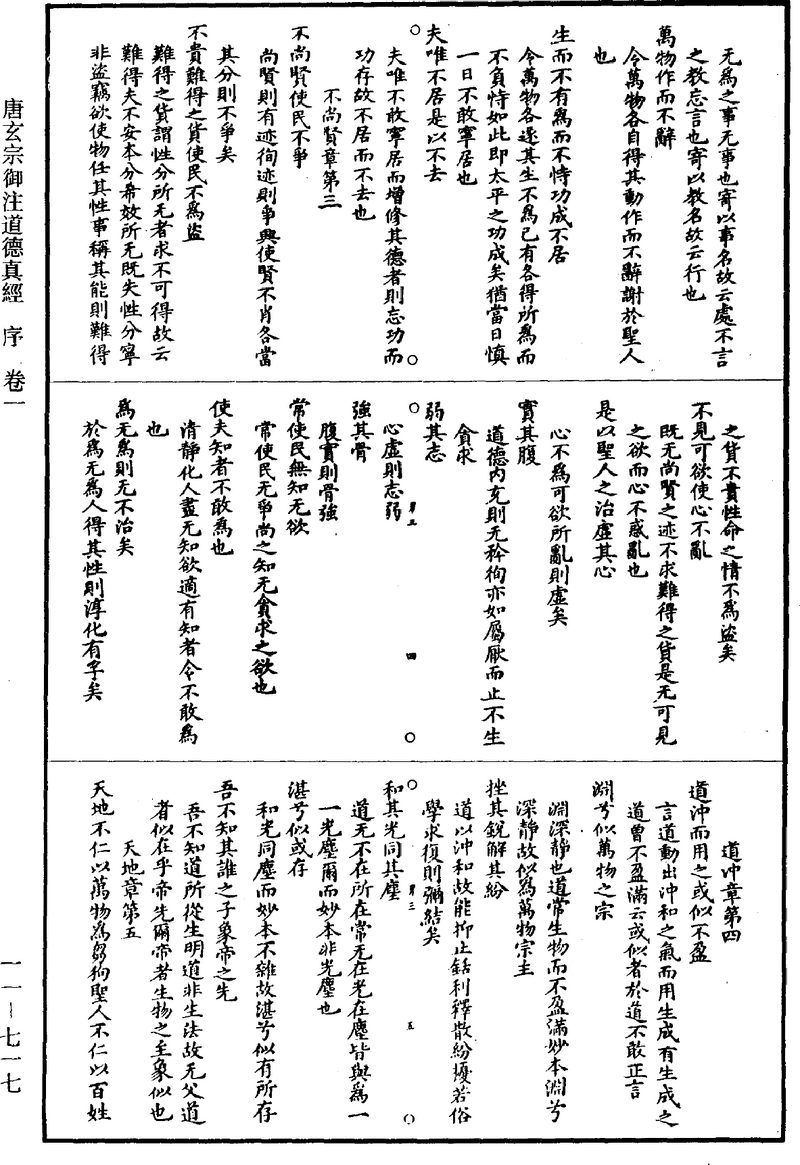 唐玄宗御注道德真經　序　卷一
无為之事无事也寄以事名故云處不言
之教忘言也寄以教名故云行也
萬物作而不辭
令萬物各自得其動作而不辭謝於聖人
也
生而不有為而不恃功成不居
令萬物各遂其生不為己有各得所為而
不負恃如此即太平之功成矣猶當日慎
一日不敢寧居也
夫唯不居是以不去
夫唯不敢寧居而增修其德者則忘功而
功存故不居而不去也
不尚賢章第三
不尚賢使民不爭
尚賢則有迹徇迹則爭興使賢不肖各當
其分則不爭矣
不貴難得之貨使民不為盜
難得之貨謂性分所无者求不可得故云
難得夫不安本分希效所无既失性分寧
非盜竊欲使物任其性事稱其能則難得
之貨不貴性命之情不為盜矣
不見可欲使心不亂
既无尚賢之迹不求難得之貨是无可見
之欲而心不惑亂也
是以聖人之治虛其心
心不為可欲所亂則虛矣
實其腹
道德內充則无矜徇亦如屬厭而止不生
貪求
弱其志
心虛則志弱
強其骨
腹實則骨強
常使民無知无欲
常使民无爭尚之知无貪求之欲也
使夫知者不敢為也
清靜化人盡无知欲適有知者令不敢為
也
為无為則无不治矣
於為无為人得其性則淳化有孚矣
四
道沖章第四
道沖而用之或似不盈
言道動出沖和之氣而用生成有生成之
道曾不盈滿云或似者於道不敢正言
淵兮似萬物之宗
淵深靜也道常生物而不盈滿妙本淵兮
深靜故似為萬物宗主
挫其銳解其紛
道以沖和故能抑止銛利釋散紛擾若俗
學求復則彌結矣
和其光同其塵
道无不在所在常无在光在塵皆與為一
一光塵爾而妙本非光塵也
湛兮似或存
和光同塵而妙本不雜故湛兮似有所存
吾不知其誰之子象帝之先
吾不知道所從生明道非生法故无父道
者似在乎帝先爾帝者生物之主象似也
天地章第五
天地不仁以萬物為芻狗聖人不仁以百姓
五
一一－七一七